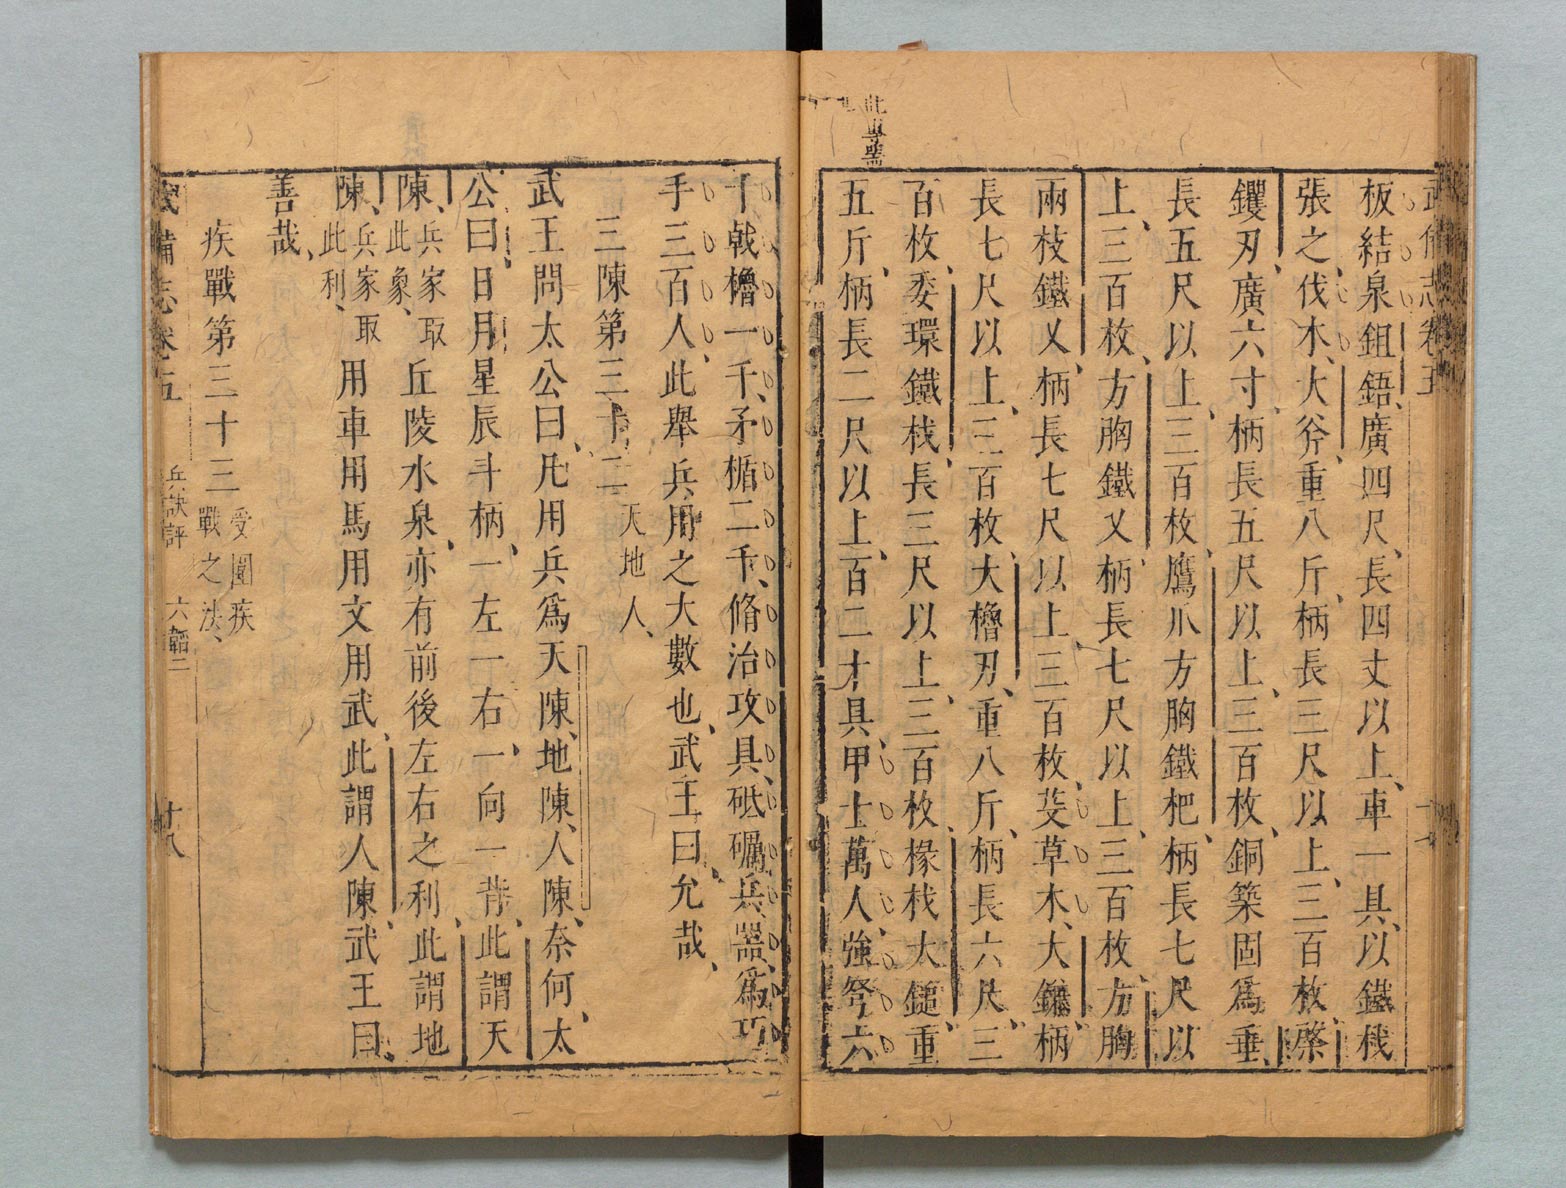 此專器
武備志卷五
板結泉鉏鋙、廣四尺、長四丈以上、車一具、以鐵杙
張之、伐木、大斧、重八斤、柄長三尺以上、三百枚、棨
钁刃、廣六寸、柄長五尺以上、三百枚、銅築固爲垂、
長五尺以上、三百枚、鷹爪方胸鐵杷、柄長七尺以
上、三百枚、方胸鐵叉、柄長七尺以上、三百枚、方胸
兩枝鐵叉、柄長七尺以上、三百枚、芟草木、大鐮、柄
長七尺以上、三百枚、大櫓刃、重八斤、柄長六尺、三
百枚、委環鐵杙、長三尺以上、三百枚、椓杙大鎚、重
五斤、柄長二尺以上、百二才具、甲士萬人、強弩六
千、戟櫓一千、矛楯二千、脩治攻具、砥礪兵器、爲巧
手三百人、此舉兵用之大數也、武王曰、允哉、
三陳第三十二 天地人、
武王問太公曰、凡用兵爲天陳、地陳、人陳、奈何、太
公曰、日月星辰斗柄、一左一右、一向一背、此謂天
陳、兵家取此象、丘陵水泉、亦有前後左右之利、此謂地
陳、兵家取此利、用車用馬用文用武、此謂人陳、武王曰、
善哉、
疾戰第三十三 受圍疾戰之法、
武備志卷五 兵訣評 六韜二 十八